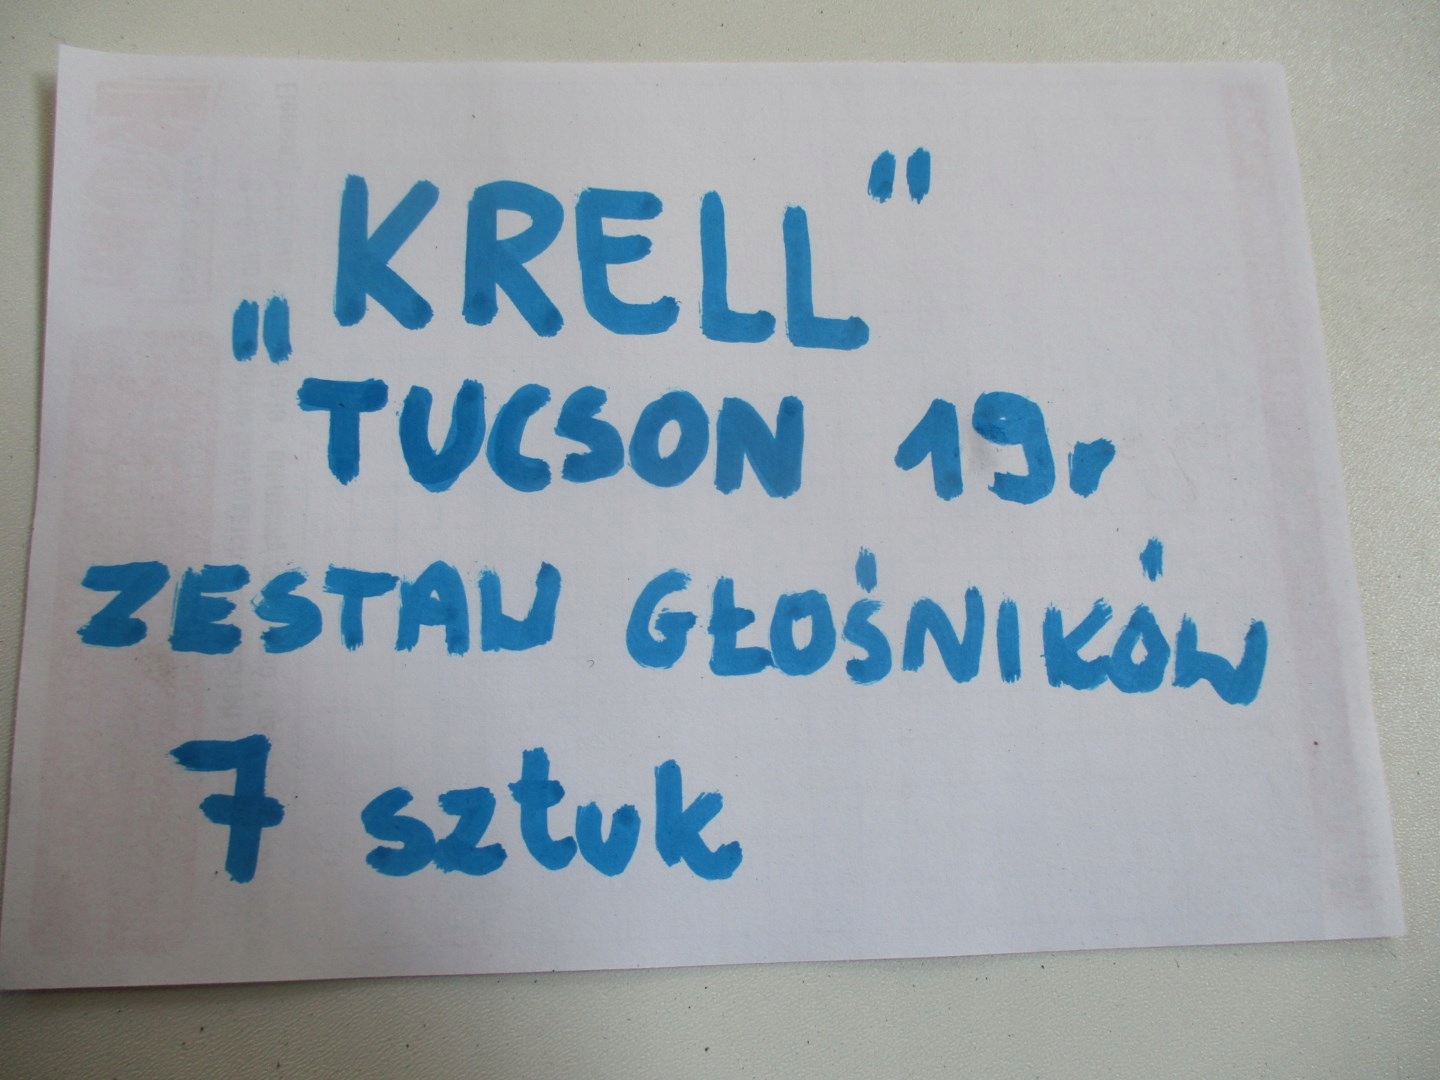 „KRELL"
TUCSON 19r
ZESTAW GŁOŚNIKÓW
7 sztuk